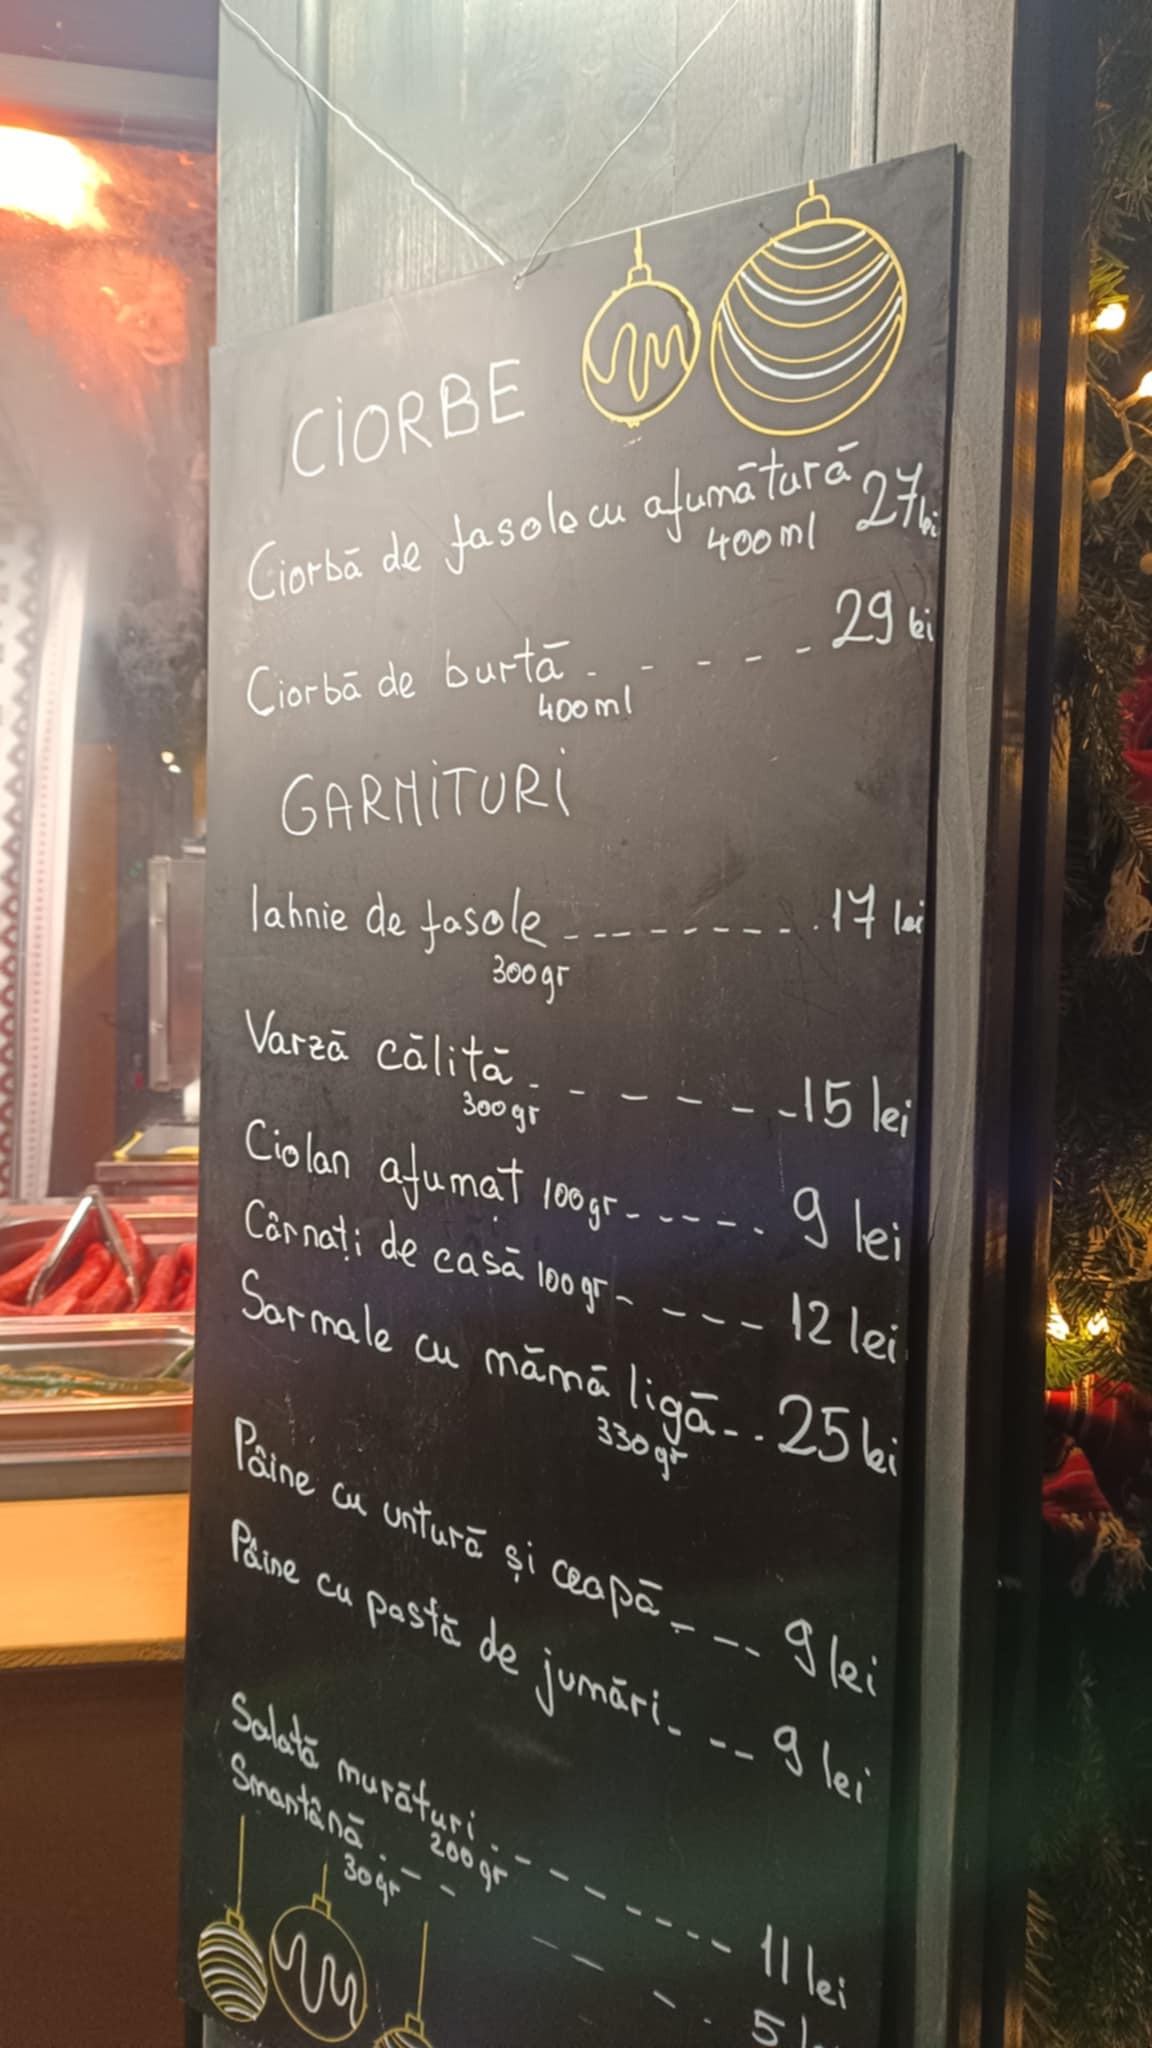 CIORBE
Ciorbă de fasole cu afumătură 27 lei
400ml
Ciorbă de burtă - - - - - 29 lei
400ml
GARNITURI
Iahnie de fasole - - - - - - - - 17 lei
300gr
Varză călită - - - - - - 15 lei
300gr
Ciolan afumat 100gr - - - - - 9 lei
Cârnați de casă 100gr - - - - 12 lei
Sarmale cu mămăligă - - 25 lei
330gr
Pâine cu untură și ceapă - - - 9 lei
Pâine cu pastă de jumări - - - 9 lei
Salată murături - - - - - - - 11 lei
200gr
Smântână - - - - - - 5
30gr